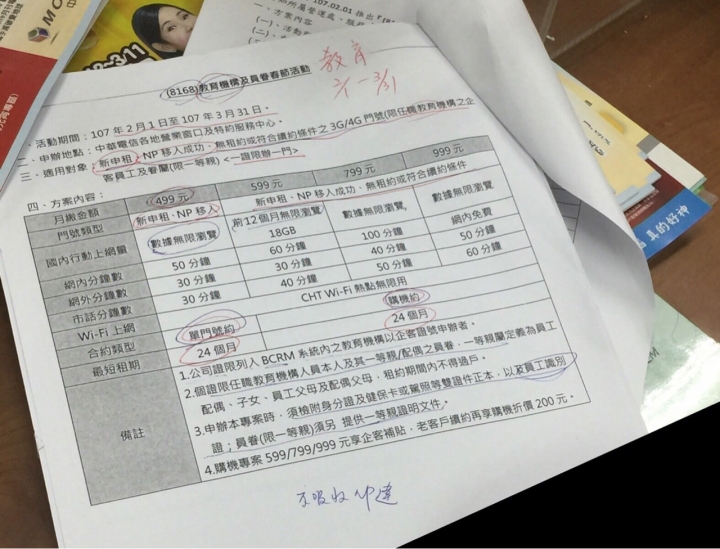 (8168)教育機構及員眷春節活動
教育
2/1-3/31
一、活動期間：107年2月1日至107年3月31日。
二、申辦地點：中華電信各地營業窗口及特約服務中心。
三、適用對象：新申租、NP移入成功、無租約或符合續約條件之3G/4G門號(限任職教育機構之企
客員工及眷屬(限一等親)<一證限辦一門>
四、方案內容：
月繳金額 499元 599元 799元 999元
門號類型 新申租、NP移入 新申租、NP移入成功、無租約或符合續約條件
國內行動上網量 數據無限瀏覽 前12個月無限瀏覽 18GB 數據無限瀏覽 數據無限瀏覽
網內分鐘數 50分鐘 60分鐘 100分鐘 網內免費
網外分鐘數 30分鐘 30分鐘 40分鐘 50分鐘
市話分鐘數 30分鐘 40分鐘 50分鐘 60分鐘
Wi-Fi上網 CHT Wi-Fi熱點無限用
合約類型 單門號約 購機約
最短租期 24個月 24個月
備註
1.公司證限列入BCRM系統內之教育機構以企客證號申辦者。
2.個證限任職教育機構人員本人及其一等親/配偶之員眷，一等親屬定義為員工
配偶、子女、員工父母及配偶父母，租約期間內不得過戶。
3.申辦本專案時，須檢附身分證及健保卡或駕照等雙證件正本，以及員工識別
證；員眷(限一等親)須另 提供一等親證明文件。
4.購機專案599/799/999元享企客補貼，老客戶續約再享購機折價200元。
不吸收NP違
107.02.01推出
一、方案內容
(一)、
(二)、
2-3/11
真的好神